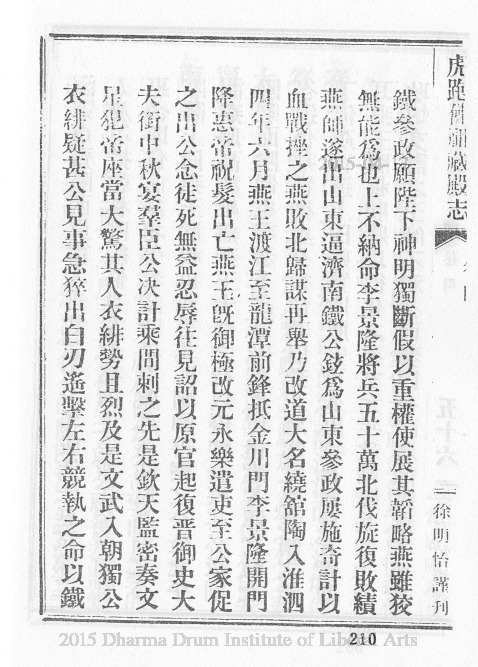 虎跑佛祖藏殿志
五十六
徐明怡謹刊
鐵參政願陛下神明獨斷假以重權使展其韜略燕雖狡
無能爲也上不納命李景隆將兵五十萬北伐旋復敗績
燕師遂出山東逼濟南鐵公鉉爲山東參政屢施奇計以
血戰挫之燕敗北歸謀再舉乃改道大名繞舘陶入淮泗
四年六月燕王渡江至龍潭前鋒抵金川門李景隆開門
降惠帝祝髮出亡燕王旣御極改元永樂遣吏至公家促
之出公念徒死無益忍辱往見詔以原官起復晋御史大
夫銜中秋宴羣臣公决計乘間刺之先是欽天監密奏文
星犯帝座當大驚其人衣緋勢且烈及是文武入朝獨公
衣緋疑甚公見事急猝出白刃遙擊左右競執之命以鐵
210
2015 Dharma Drum Institute of Liberal Arts